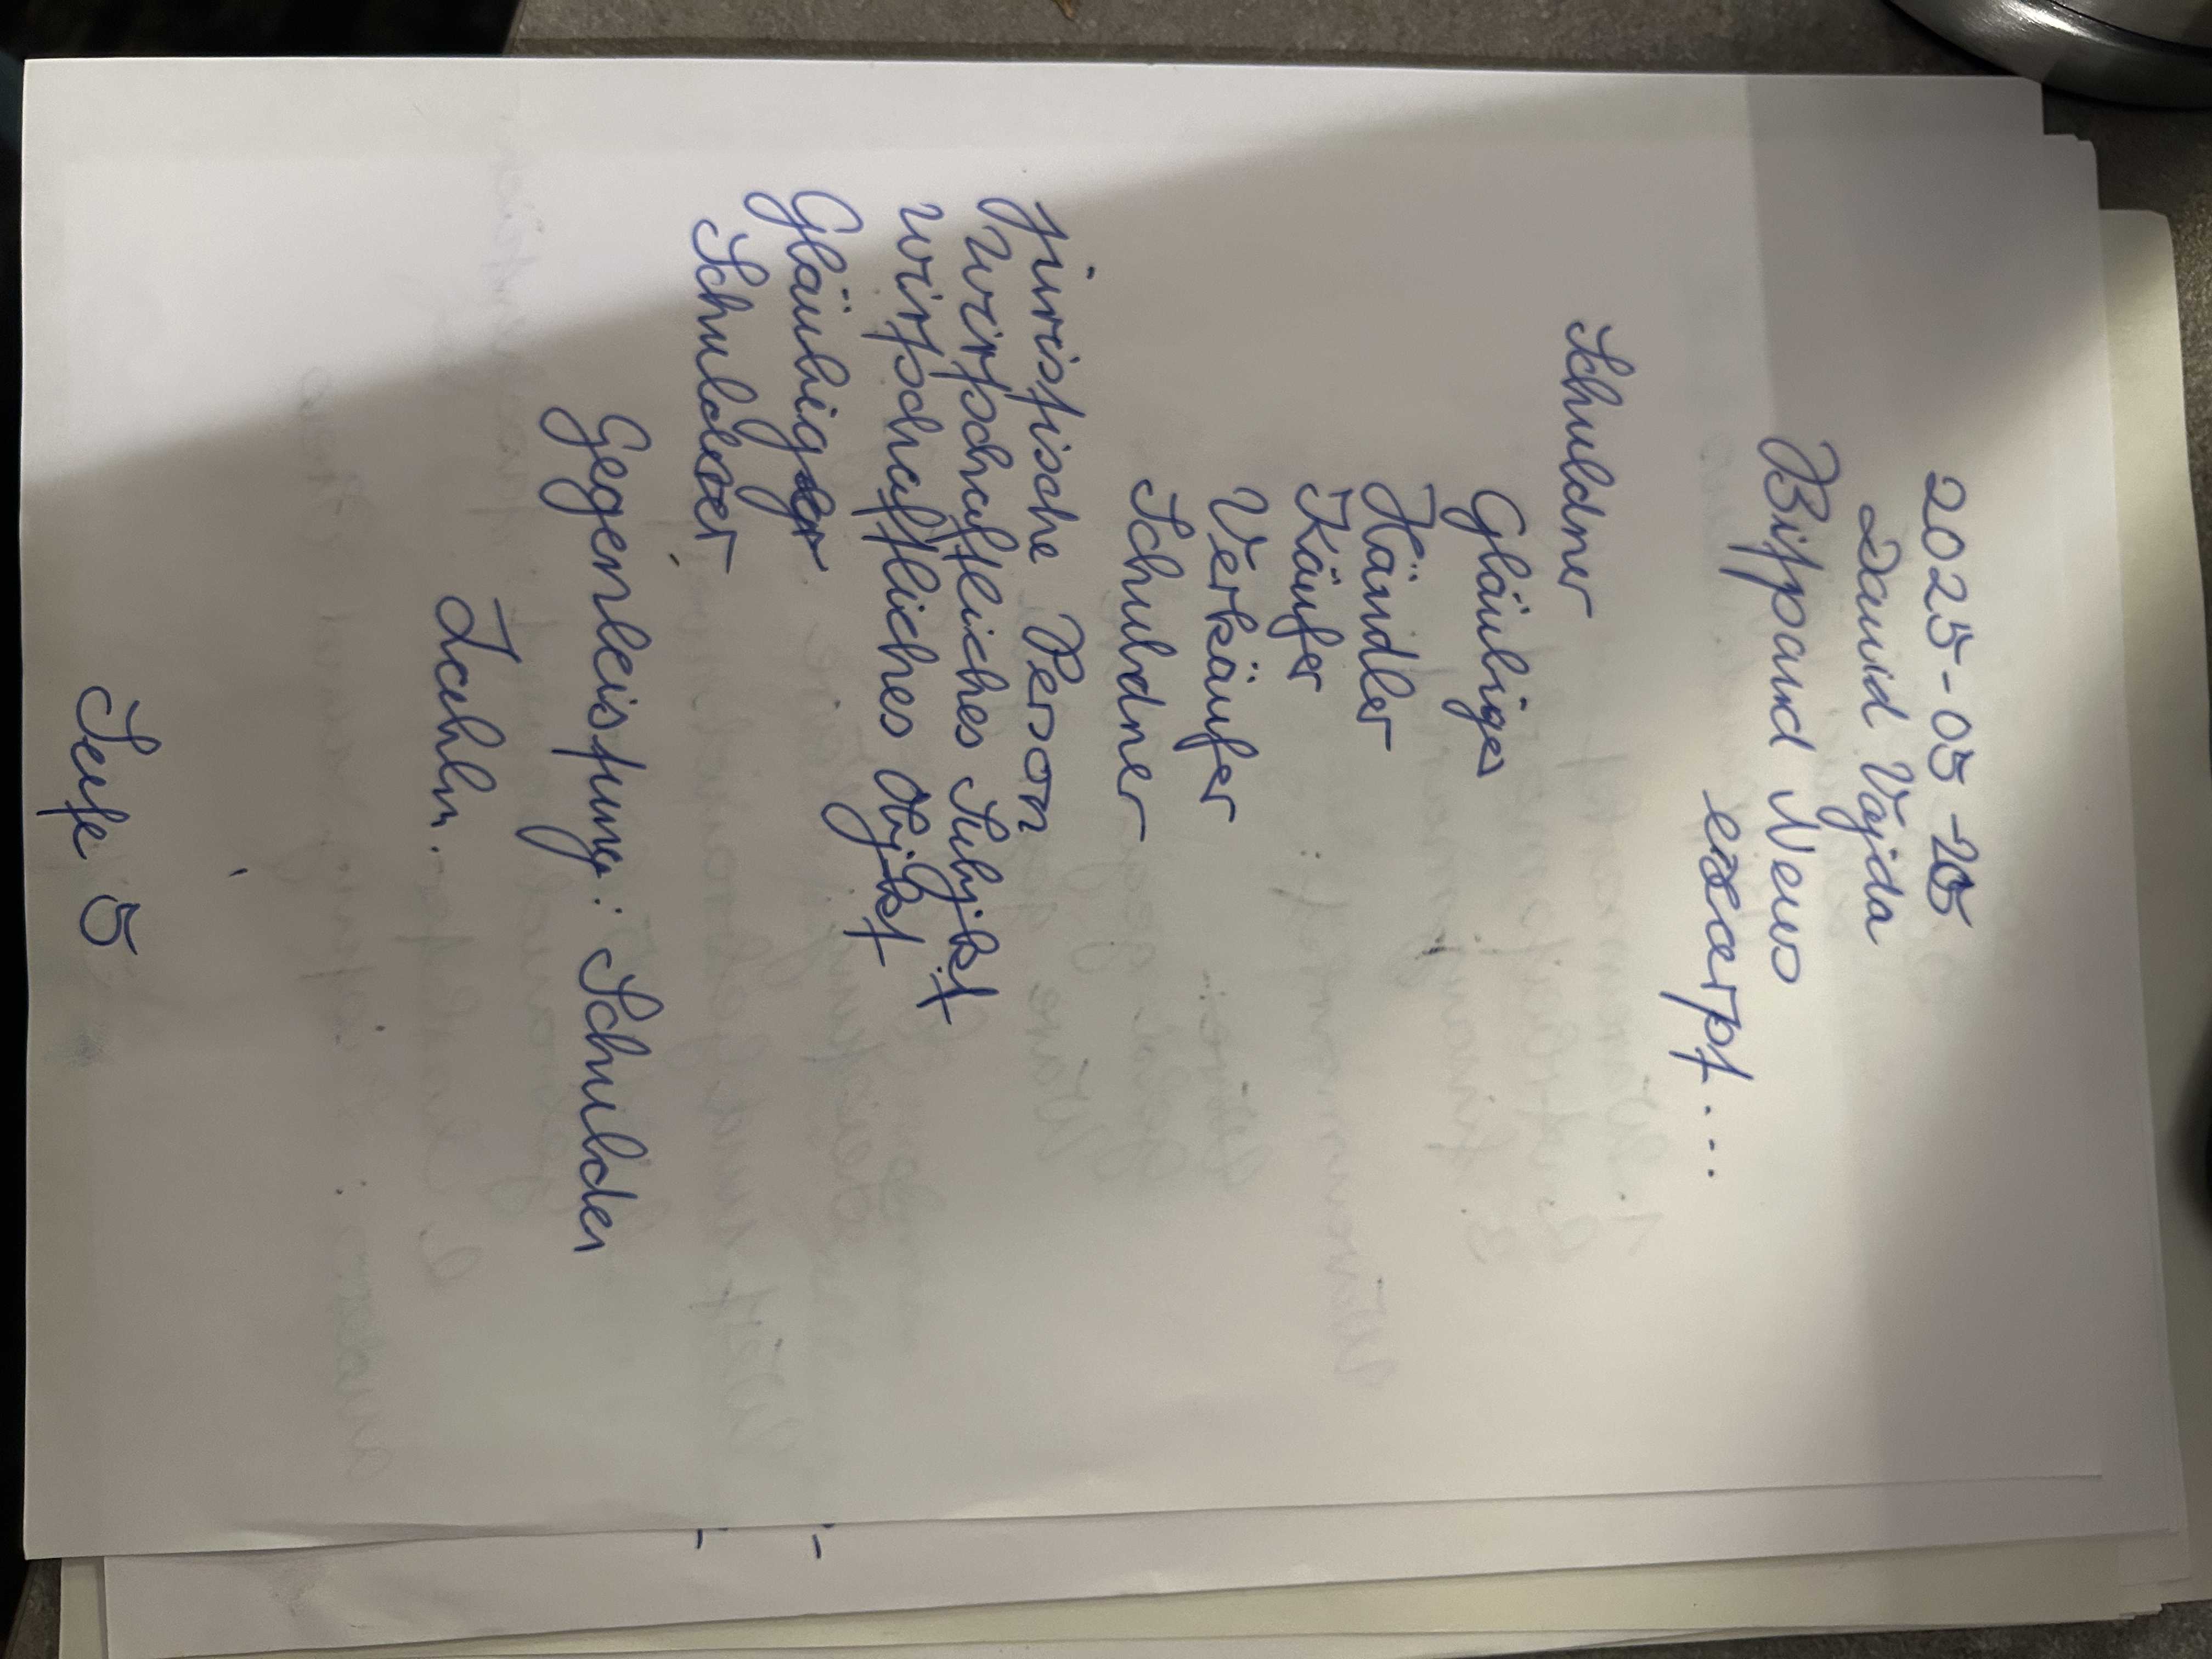 2025-05-25
David Vajda
Bitpand News
excerpt...
Schuldner
Gläubiges
Händler
Käufer
Verkäufer
Schuldner
juristische Person
wirtschaftliches Subjekt
wirtschaftliches Objekt
Gläubiger
Schuldner
Gegenleistung: Schulden
Zahln.
Seite 5